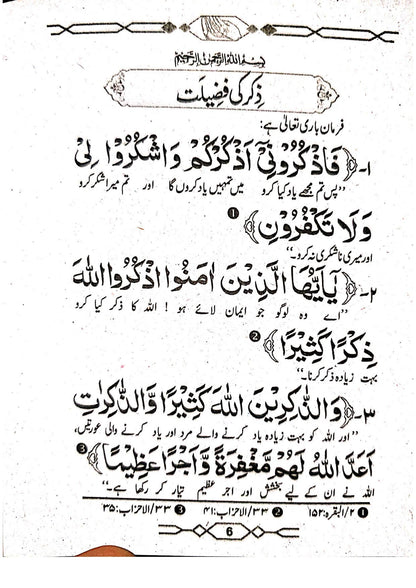 بِسْمِ اللهِ الرَّحْمٰنِ الرَّحِيْمِ
ذِکر کی فضِیلَت
فرمان باری تعالیٰ ہے:
۱-﴿فَاذْكُرُوْنِیْۤ اَذْكُرْكُمْ وَاشْكُرُوْا لِیْ
’’پس تم مجھے یاد کیا کرو میں تمہیں یاد کروں گا اور تم میرا شکر کرو
وَلَا تَكْفُرُوْنِ﴾ ❶
اور میری ناشکری نہ کرو۔‘‘
۲-﴿یٰۤاَیُّهَا الَّذِیْنَ اٰمَنُوا اذْكُرُوا اللّٰهَ
’’اے وہ لوگو جو ایمان لائے ہو! اللہ کا ذکر کیا کرو
ذِكْرًا كَثِیْرًا﴾ ❷
بہت زیادہ ذکر کرنا۔‘‘
۳-﴿وَالذّٰكِرِیْنَ اللّٰهَ كَثِیْرًا وَّالذّٰكِرٰتِ
’’اور اللہ کو بہت زیادہ یاد کرنے والے مرد اور یاد کرنے والی عورتیں،
اَعَدَّ اللّٰهُ لَهُمْ مَّغْفِرَةً وَّاَجْرًا عَظِیْمًا﴾ ❸
اللہ نے ان کے لیے بخشش اور اجر عظیم تیار کر رکھا ہے۔‘‘
❶ ۲/البقرہ:۱۵۲ ❷ ۳۳/الاحزاب:۴۱ ❸ ۳۳/الاحزاب:۳۵
6